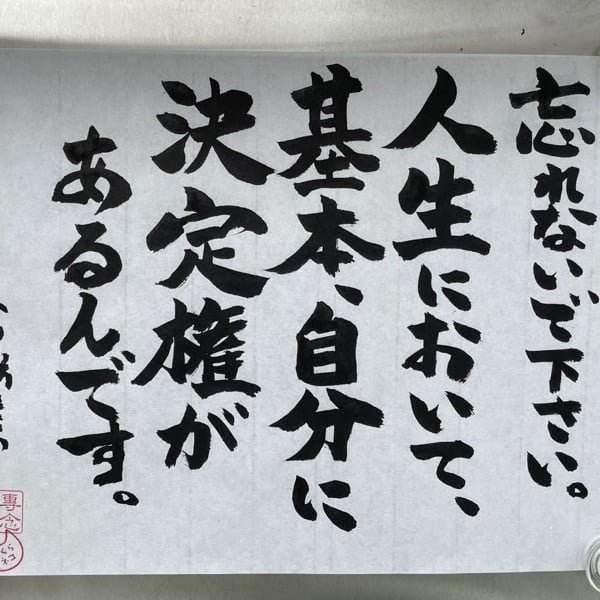 忘れないで下さい。
人生において、
基本、自分に
決定権が
あるんです。
専念